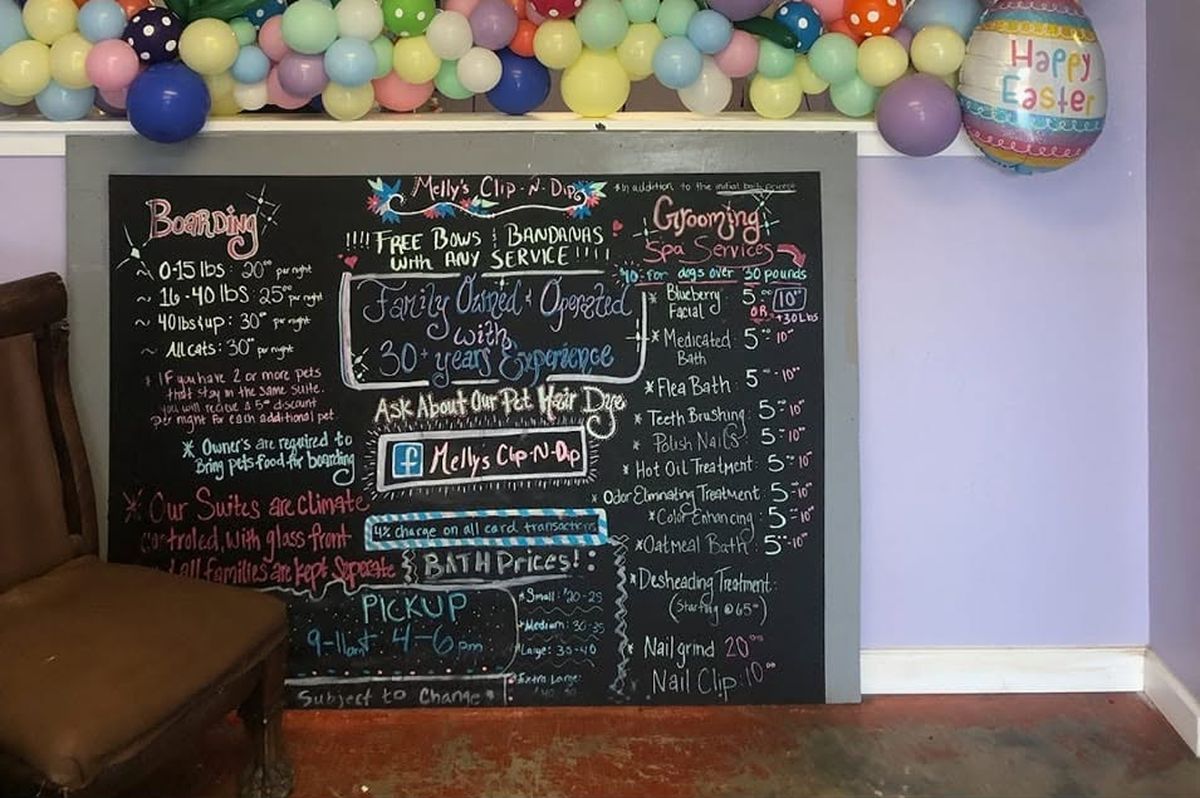 Happy
Easter
Boarding
~ 0-15 lbs: 20⁰⁰ per night
~ 16-40 lbs: 25⁰⁰ per night
~ 40lbs & up: 30⁰⁰ per night
~ All cats: 30⁰⁰ per night
* If you have 2 or more pets
that stay in the same suite.
you will recive a 5⁰⁰ discount
per night for each additional pet.
* Owner's are required to
Bring pets food for boarding
* Our Suites are climate
controled, with glass front
all families are kept Seperate
Melly's Clip-N-Dip
!!!! FREE Bows & BANDANAS
with ANY SERVICE !!!!
Family Owned & Operated
with
30+ years Experience
Ask About Our Pet Hair Dye
f Mellys Clip-N-Dip
4% charge on all card transactions
BATH Prices! :
PICKUP
9-11am 4-6pm
Subject to Change
*Small: 20-25
*Medium: 30-35
*Large: 35-40
*Extra Large:
*In addition to the initial bath prices*
Grooming
Spa Services
$10 for dogs over 30 pounds
* Blueberry Facial 5⁰⁰ OR 10⁰⁰ +30 Lbs
* Medicated Bath 5⁰⁰-10⁰⁰
* Flea Bath: 5⁰⁰-10⁰⁰
* Teeth Brushing: 5⁰⁰-10⁰⁰
* Polish Nails: 5⁰⁰-10⁰⁰
* Hot Oil Treatment: 5⁰⁰-10⁰⁰
* Odor Elminating Treatment: 5⁰⁰-10⁰⁰
* Color Enhancing: 5⁰⁰-10⁰⁰
* Oatmeal Bath: 5⁰⁰-10⁰⁰
* Desheading Treatment:
(Starting @ 65⁰⁰)
* Nail grind 20⁰⁰
Nail Clip: 10⁰⁰